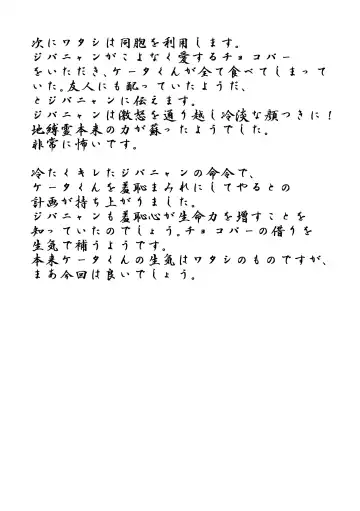 次にワタシは同胞を利用します。
ジバニャンがこよなく愛するチョコバー
をいただき、ケータくんが全て食べてしまって
いた。友人にも配っていたようだ、
とジバニャンに伝えます。
ジバニャンは激怒を通り越し冷淡な顔つきに！
地縛霊本来の力が蘇ったようでした。
非常に怖いです。
冷たくキレたジバニャンの命令で、
ケータくんを羞恥まみれにしてやるとの
計画が持ち上がりました。
ジバニャンも羞恥心が生命力を増すことを
知っていたのでしょう。チョコバーの借りを
生気で補うようです。
本来ケータくんの生気はワタシのものですが、
まあ今回は良いでしょう。